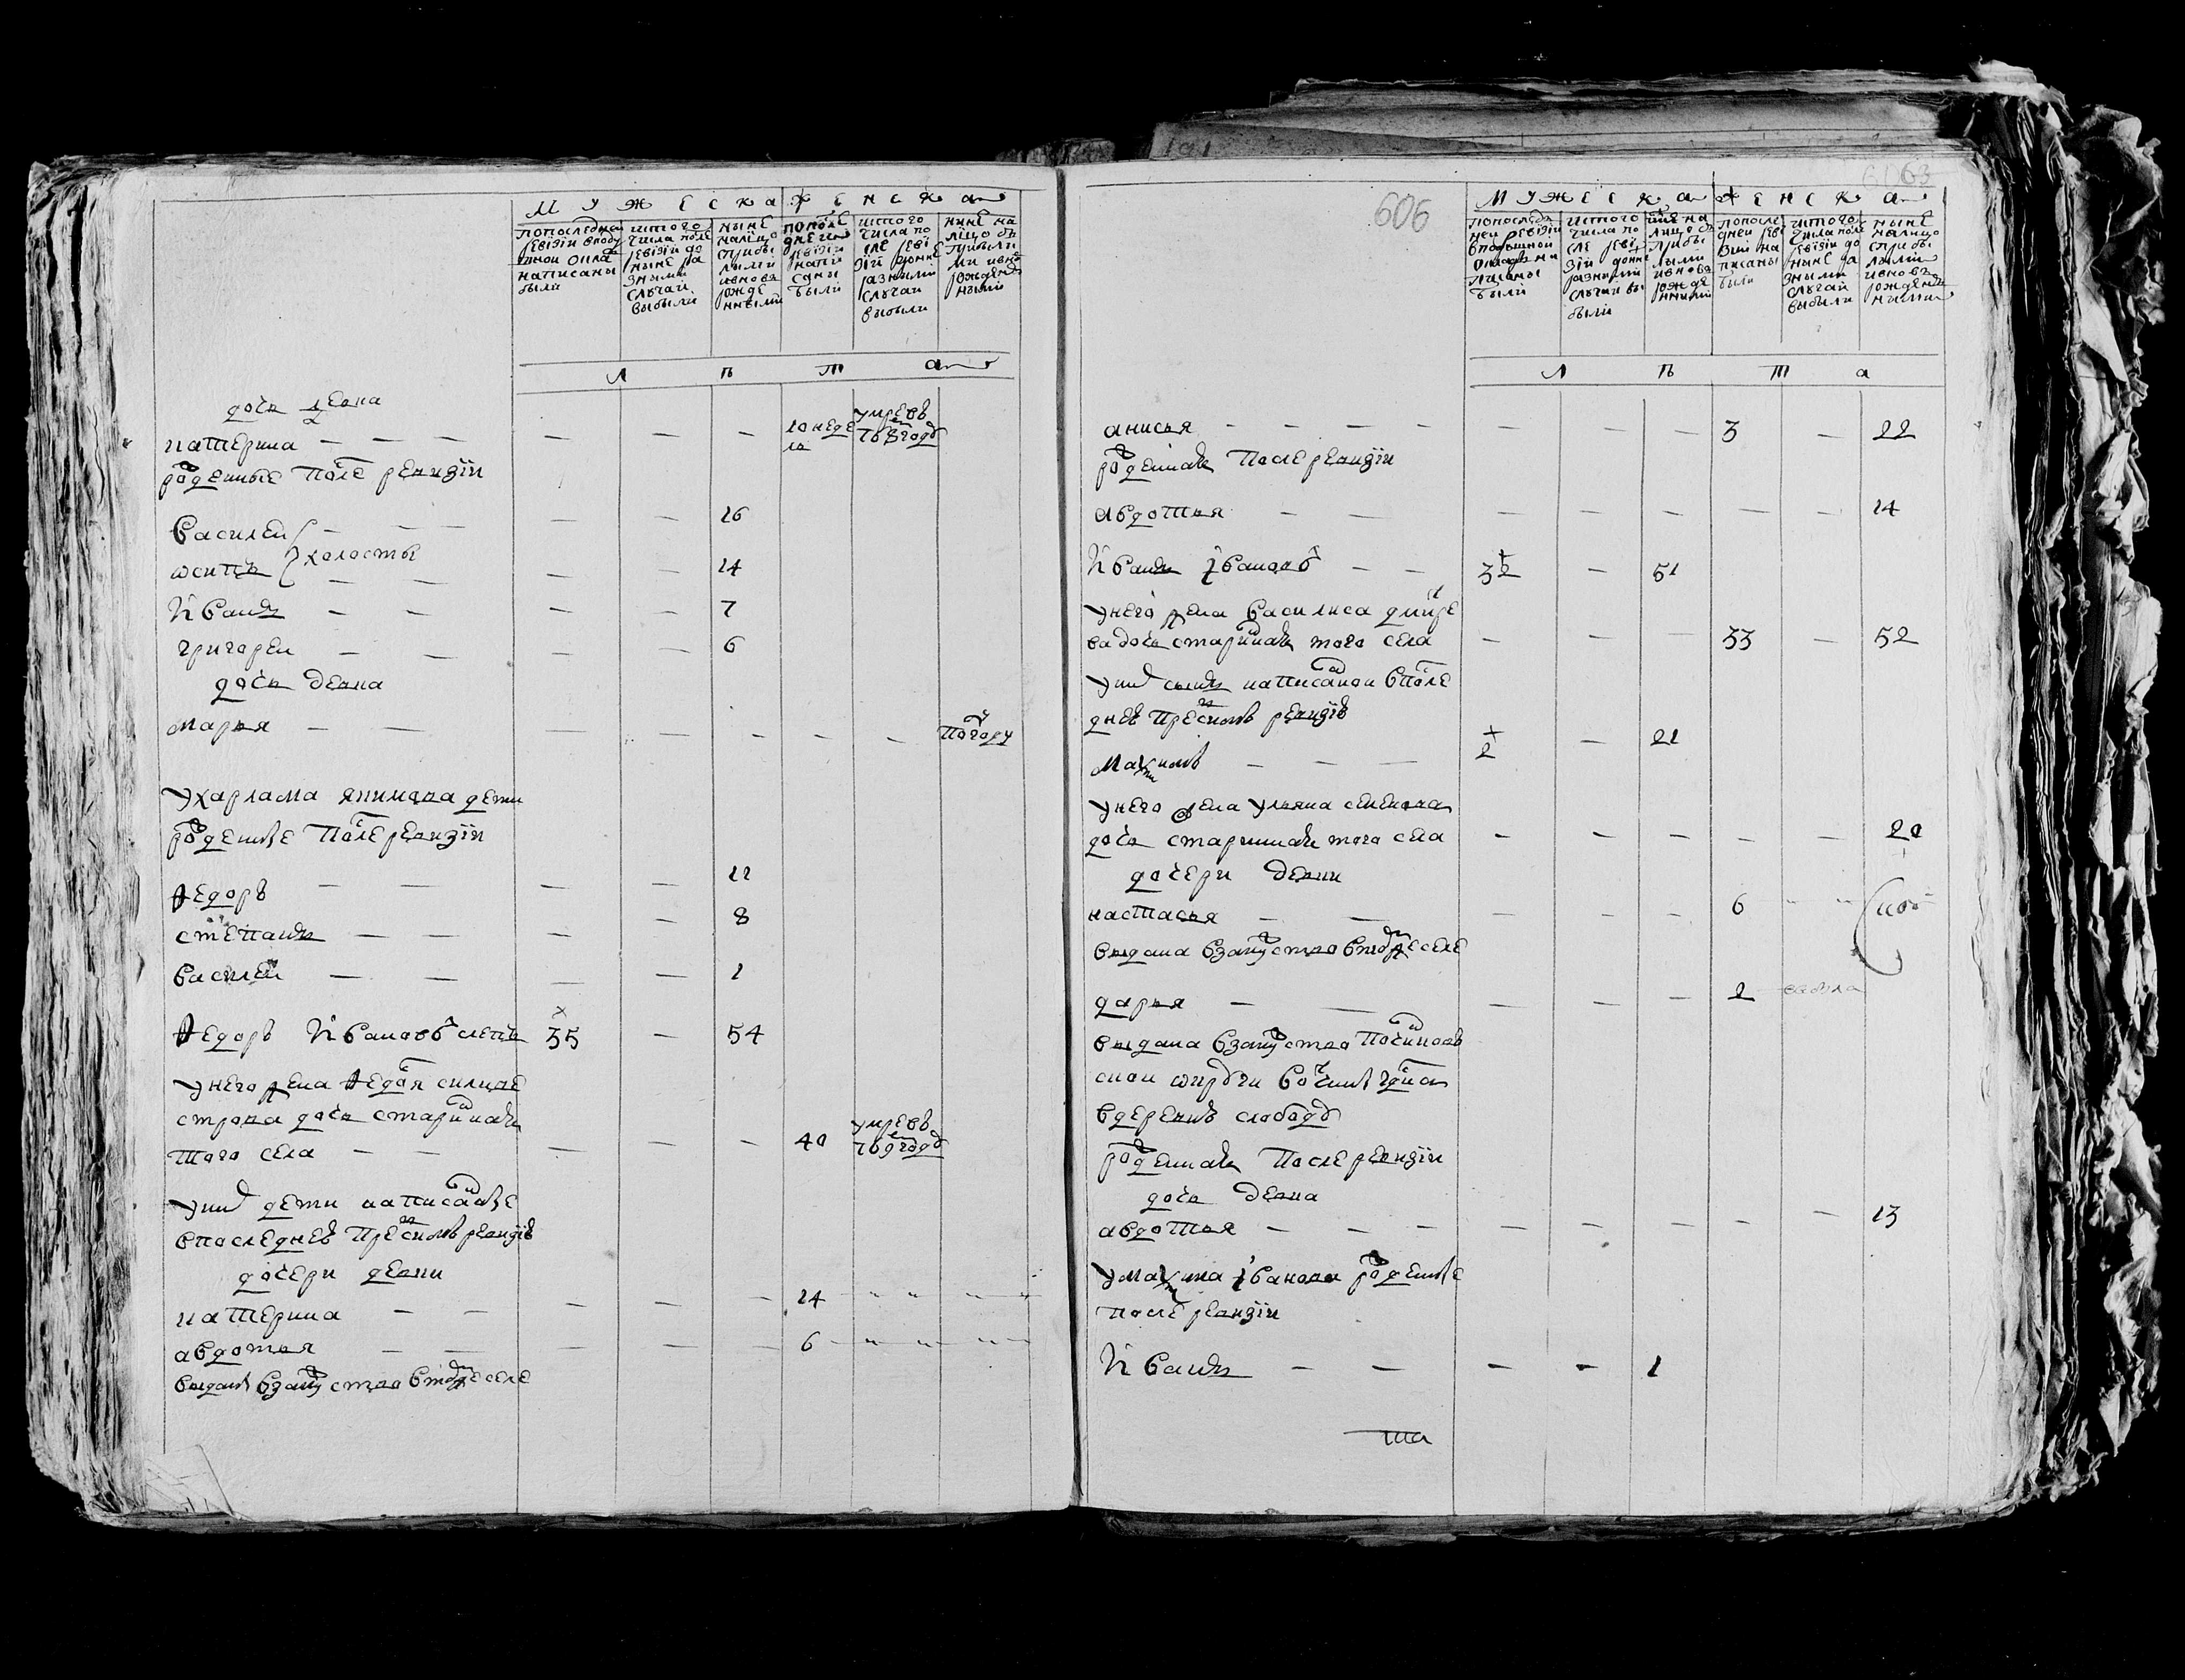 М У Ж Е С К А Ж Е Н С К А
попоследней ревизии вподушной окладъ написаны были
ис того числа после ревизии до ныне разными случаи выбыли
ныне налицо сприбылыми ивновь рожденными
попоследнеи ревизии написаны были
ис того числа после ревизии доныне разными случаи выбыли
ныне налицо сприбылыми ивновь рожденными
Л Ѣ Т А
дочь девка
катерина — — — — — — 10 недель умре въ 763 годѣ
рожденные после ревизии
Василеи — — — — — 16
холосты
ѡсипъ — — — — 14
Иванъ — — — — 7
григореи — — — — 6
дочь девка
марья — — — — — — — погоду
у харлама якимова дети
рожденные после ревизии
Ѳедоръ — — — — 11
степанъ — — — — 8
василеи — — — — 1
Ѳедоръ Ивановъ слепъ 35 — 54
унего жена Ѳедосья силиве
строва дочь старинная
того села — — — — — 40 умре въ
годѣ
уних дети написанные
впоследнеѣ пре симъ ревизиѣ
дочери девки
катерина — — — — — 14
авдотья — — — — — 6
выданы взамужство втомже селе
606
М У Ж Е С К А Ж Е Н С К А
попоследнеи ревизии вподушной окладъ написаны были
ис того числа после ревизии доныне разными случаи выбыли
ныне налицо сприбылыми ивновь рожденными
попоследнеи ревизии написаны были
ис того числа после ревизии до ныне разными случаи выбыли
ныне налицо сприбылыми ивновь рожденными
Л Ѣ Т А
анисья — — — — — — — 3 — 22
рожденная после ревизии
авдотья — — — — — — — 14
Иванъ Ивановъ — — 32 — 51
унего жена василиса дмитре
ва дочь старинная того села — — — 33 — 52
уних сынъ написанои впосле
днеѣ пре симъ ревизиѣ
Максимъ — — — 2 — 21
унего жена ульяна семенова
дочь старинная того села — — — — — 20
дочери девки
настасья — — — — — 6
выдана взамужство втомже селе
дарья — — — — — 2
выдана взамужство
вдеревнѣ слободѣ
рожденная после ревизии
дочь девка
авдотья — — — — — — — — 13
у максима Иванова рожденные
после ревизии
Иванъ — — — — 1